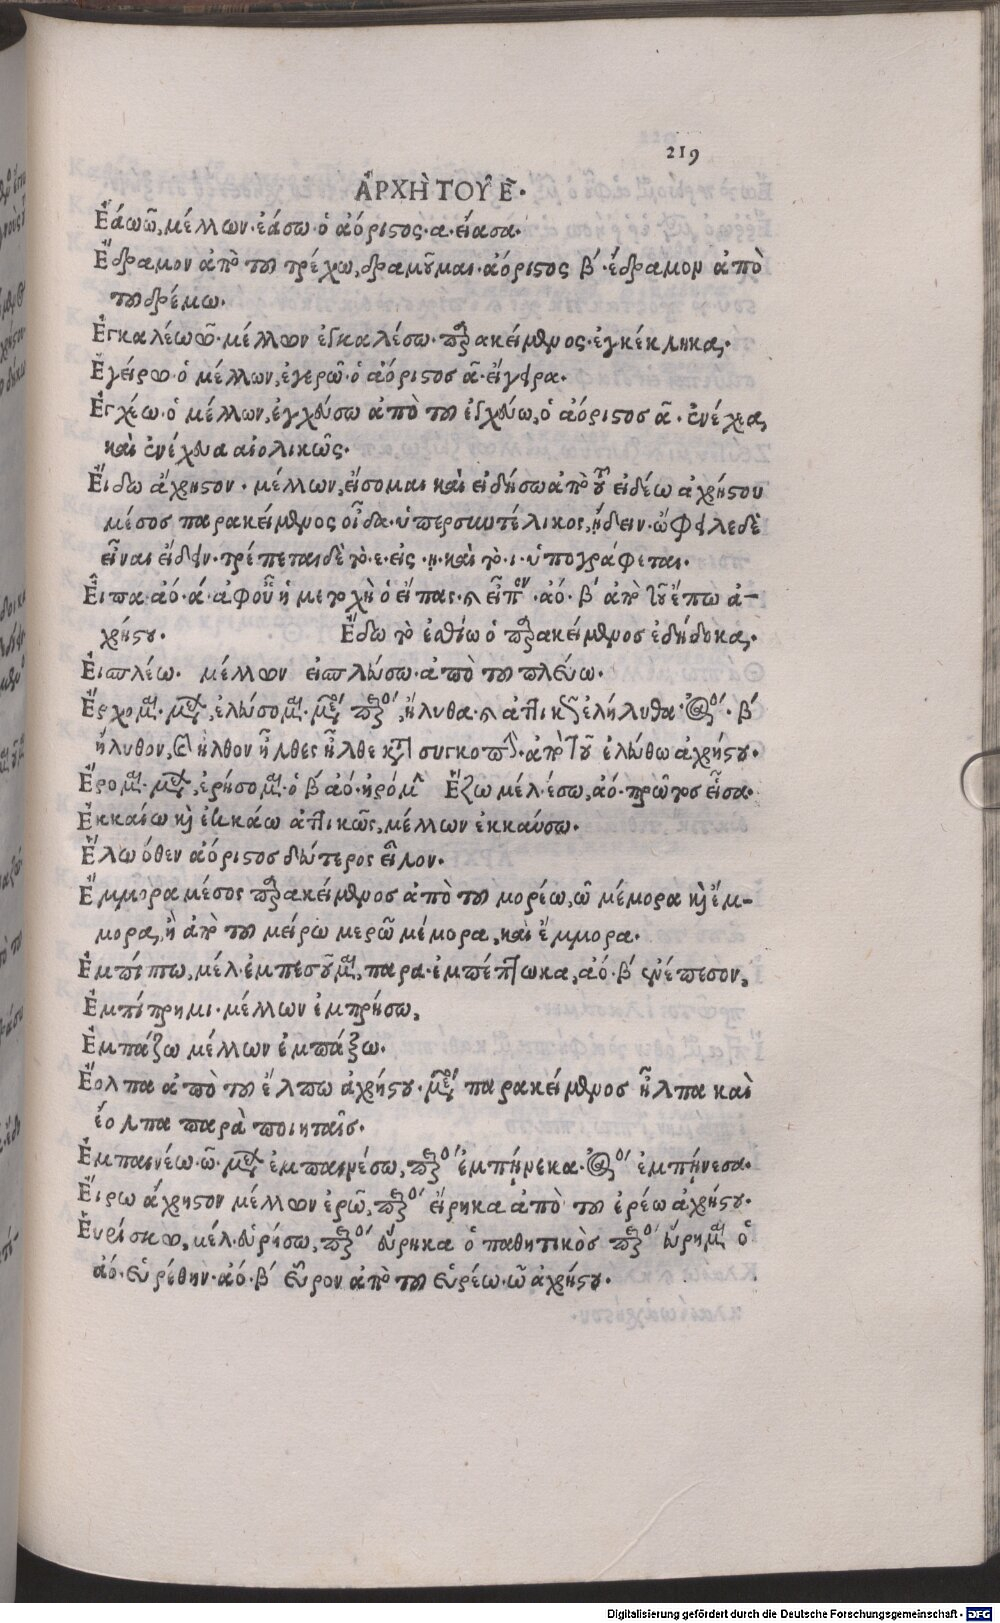 219
ἈΡΧῊ ΤΟΥ͂ Ε̄.
Ἐάωῶ, μέλλων· ἐάσω· ὁ ἀόριστος· α· εἴασα·
Ἔδραμον ἀπὸ τοῦ τρέχω, δραμοῦμαι· ἀόριστος β΄· ἔδραμον ἀπὸ
τοῦ δρέμω·
Ἐγκαλέωῶ· μέλλων ἐγκαλέσω· παρακείμενος· ἐγκέκληκα,·
Ἐγείρω· ὁ μέλλων, ἐγερῶ· ὁ ἀόριστος ᾱ· ἤγειρα·
Ἐγχέω· ὁ μέλλων, ἐγχεύσω ἀπὸ τοῦ ἐγχεύω, ὁ ἀόριστος ᾱ· ἐνέχεα,
καὶ ἐνέχευα αἰολικῶς·
Εἴδω ἄχρηστον· μέλλων, εἴσομαι καὶ εἰδήσω ἀπὸ τοῦ εἰδέω ἀχρήστου
μέσος παρακείμενος οἶδα· ὑπερσυντέλικος, ᾔδειν· ὤφειλε δὲ
εἶναι εἴδειν· τρέπεται δὲ τὸ· ε· εἰς· η· καὶ τὸ· ι· ὑπογράφεται·
Εἶπα· ἀό· ά· ἀφ οὗ ἡ μετοχὴ ὁ εἴπας· εἶπον· ἀό· β΄ ἀπὸ τοῦ ἔπω ἀ-
χρήστου· Ἔδω τὸ ἐσθίω ὁ παρακείμενος ἐδήδοκα,·
Εἰσπλέω· μέλλων εἰσπλεύσω· ἀπὸ τοῦ πλεύω·
Ἔρχομαι· ἐλεύσομαι· ἤλυθα· ἐλήλυθα· β΄
ἤλυθον, ἦλθον ἦλθες ἦλθε συγκοπὴν· ἀπὸ τοῦ ἐλεύθω ἀχρήστου·
Ἔρομαι· ἐρήσομαι· ὁ β΄ ἀό· ἠρόμην Ἕζω μέλ· ἕσω, ἀό· πρῶτος εἷσα·
Ἐκκαίω καὶ ἐκκάω ἀττικῶς, μέλλων ἐκκαύσω·
Ἕλω ὅθεν ἀόριστος δεύτερος εἷλον·
Ἔμμορα μέσος παρακείμενος ἀπὸ τοῦ μορέω, ῶ μέμορα καὶ ἔμ-
μορα, ἢ ἀπὸ τοῦ μείρω μερῶ μέμορα, καὶ ἔμμορα·
Ἐμπίπτω, μέλ· ἐμπεσοῦμαι, παρα· ἐμπέπτωκα, ἀό· β΄ ἐνέπεσον,
Ἐμπίπρημι· μέλλων ἐμπρήσω,
Ἐμπάζω μέλλων ἐμπάξω·
Ἔολπα ἀπὸ τοῦ ἔλπω ἀχρήστου· παρακείμενος ἦλπα καὶ
ἔολπα παρὰ ποιηταῖς·
Ἐμπαινέω· ῶ· ἐμπαινέσω, ἐμπῄνεκα· ἐμπῄνεσα·
Εἴρω ἄχρηστον μέλλων ἐρῶ, εἴρηκα ἀπὸ τοῦ ἐρέω ἀχρήστου·
Εὑρίσκω, μέλ· εὑρήσω, εὕρηκα ὁ παθητικὸς εὕρημαι ὁ
ἀό· εὑρέθην· ἀό· β΄ εὗρον ἀπὸ τοῦ εὑρέω· ῶ ἀχρήστου·
Digitalisierung gefördert durch die Deutsche Forschungsgemeinschaft - DFG